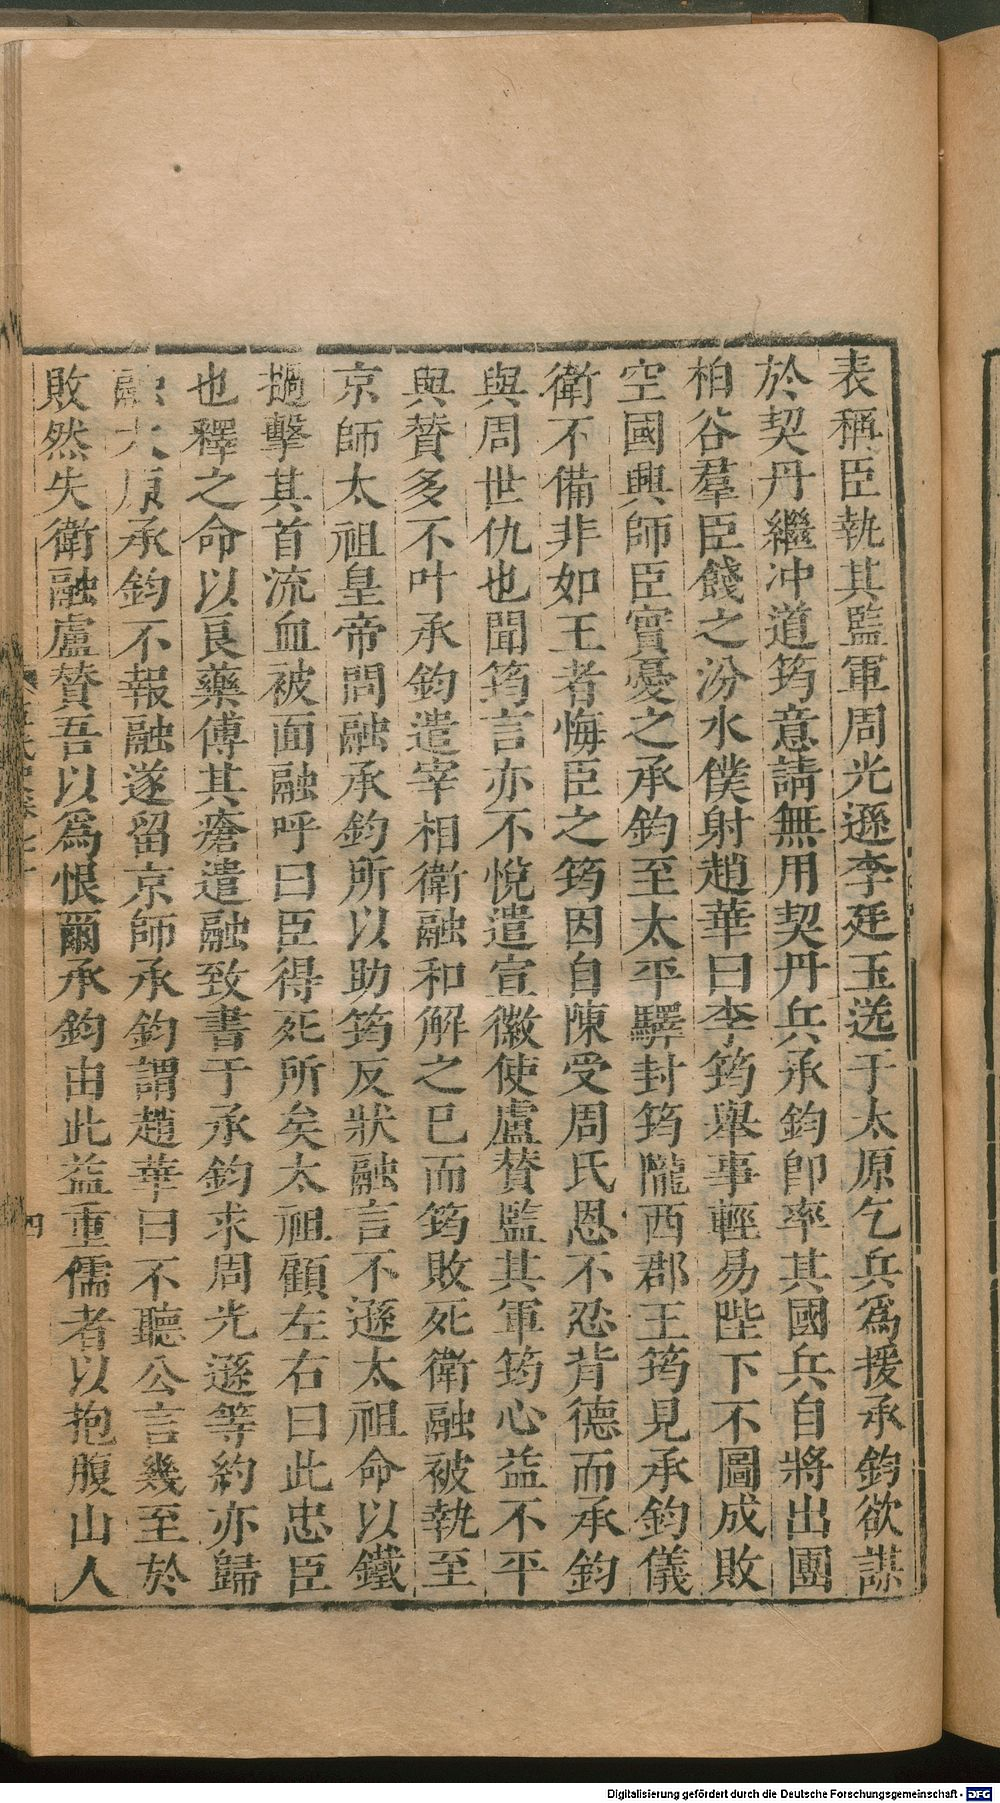 表稱臣執其監軍周光遜李廷玉送于太原乞兵爲援承鈞欲謀
於契丹繼冲道筠意請無用契丹兵承鈞即率其國兵自將出團
柏谷羣臣餞之汾水僕射趙華曰李筠舉事輕易陛下不圖成敗
空國興師臣實憂之承鈞至太平驛封筠隴西郡王筠見承鈞儀
衛不備非如王者悔臣之筠因自陳受周氏恩不忍背德而承鈞
與周世仇也聞筠言亦不悅遣宣徽使盧贊監其軍筠心益不平
與贊多不叶承鈞遣宰相衛融和解之已而筠敗死衛融被執至
京師太祖皇帝問融承鈞所以助筠反狀融言不遜太祖命以鐵
撾擊其首流血被面融呼曰臣得死所矣太祖顧左右曰此忠臣
也釋之命以良藥傅其瘡遣融致書于承鈞求周光遜等約亦歸
融太原承鈞不報融遂留京師承鈞謂趙華曰不聽公言幾至於
敗然失衛融盧贊吾以爲恨爾承鈞由此益重儒者以抱腹山人
四
Digitalisierung gefördert durch die Deutsche Forschungsgemeinschaft - DFG